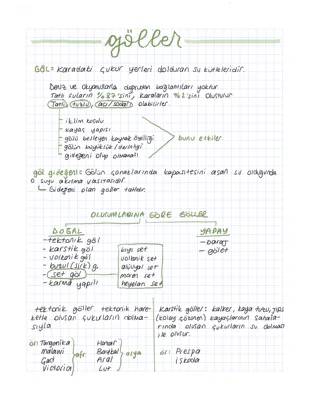 göller
GÖL = karadaki çukur yerleri dolduran su kütleleridir.
Deniz ve okyanuslarla doğrudan bağlantıları yoktur.
Tatlı suların % 87'sini, karaların % 2'sini oluşturur.
Tatlı, tuzlu, acı/sodalı olabilirler
- iklim koşulu
- kayaç yapısı
- gölü besleyen kaynak özelliği
- gölün büyüklük/derinliği
- gideğeni olup olmamalı
bunu etkiler
göl gideğeni: Gölün çanaklarında kapasitesini aşan su olduğunda
o suyu akıtma kanalıdır.
Gideğeni olan göller tatlıdır.
OLUŞUMLARINA GÖRE GÖLLER
DOĞAL
YAPAY
- tektonik göl
- karstik göl
- volkanik göl
- buzul (sirk) g.
- set göl
- karma yapılı
kıyı set
volkanik set
alüvyal set
moren set
heyelan set
- baraj
- gölet
tektonik göller: tektonik hareketle oluşan çukurların dolmasıyla
ör: Tanganika
Malawi
Gad
Victoria
afr.
Hazar
Baykal
Aral
Lut
asya
Karstik göller: kalker, kaya tuzu, jips
(kolay çözünen) kayaçlarının sahalarında oluşan çukurların su dolması
ile olur.
ör: Prespa
İşkodra